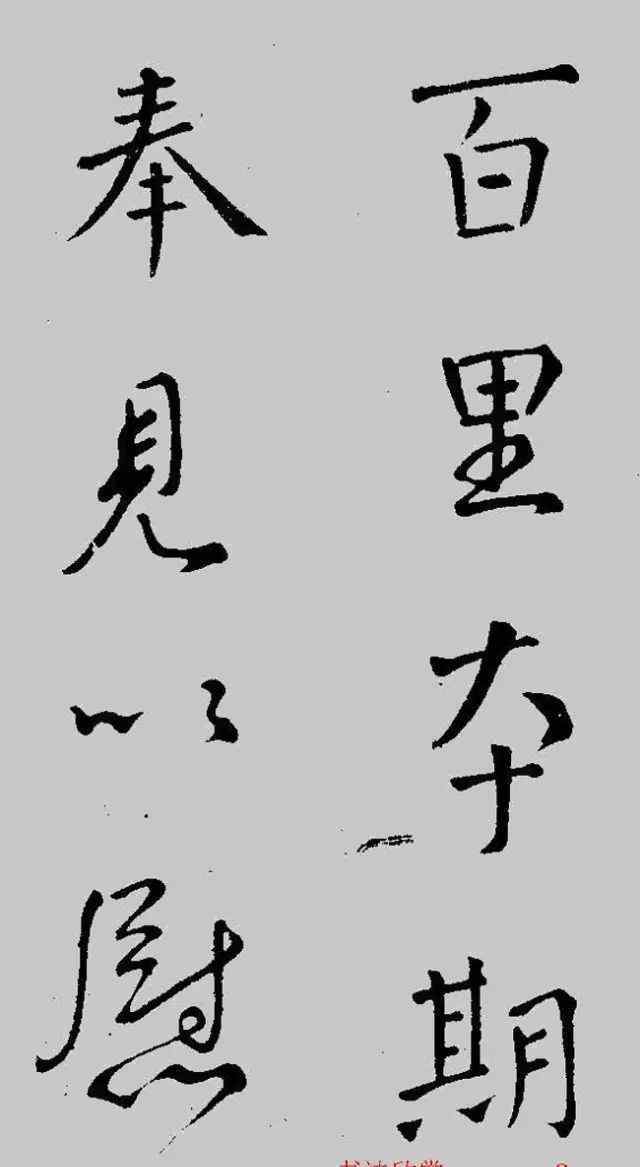 百里本期
奉見以慰